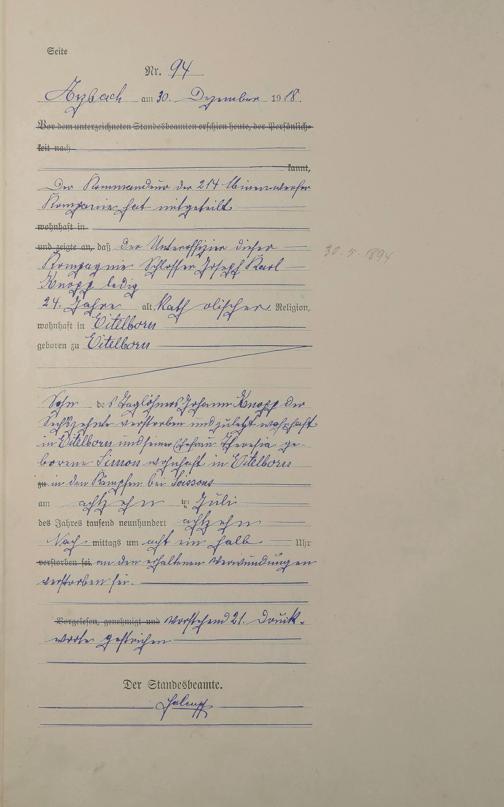 Seite
Nr. 94
Arzbach am 30. Dezember 1918.
Vor dem unterzeichneten Standesbeamten erschien heute, der Persönlich-
keit nach
kannt,
Der Kommandeur der 214 Minenwerfer
Kompanie hat mitgeteilt
wohnhaft in
und zeigte an, daß der Unteroffizier dieser
30. 5. 1894
Kompagnie Schlosser Joseph Karl
Knopp ledig
24. Jahre alt, katholischer Religion,
wohnhaft in Eitelborn
geboren zu Eitelborn
Sohn des Taglöhners Johann Knopp der
verstorben und zuletzt wohnhaft
in Eitelborn und seiner Ehefrau Theresia ge-
borene Simon wohnhaft in Eitelborn
zu in den Kämpfen bei Soissons
am achtzehn ten Juli
des Jahres tausend neunhundert achtzehn
Nach mittags um acht ein halb Uhr
verstorben sei. an den erhaltenen Verwundungen
verstorben sei.
Vorgelesen, genehmigt und Vorstehend 21. Druck-
worte gestrichen
Der Standesbeamte.